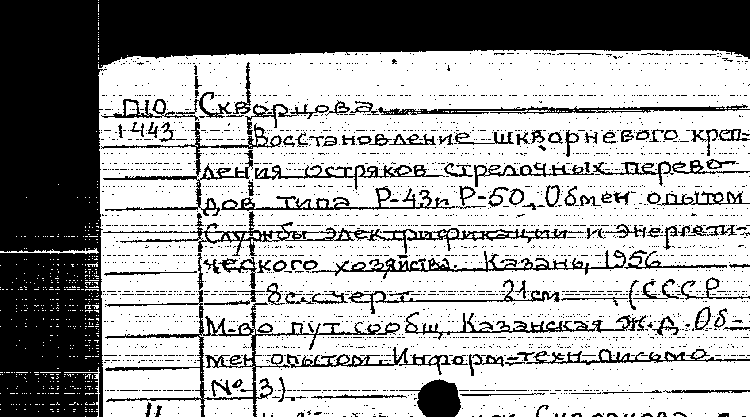 П10 Скворцова.
1443 Восстановление шкворневого креп-
ления остряков стрелочных перево-
дов типа Р-43 и Р-50. Обмен опытом
Службы электрификации и энергети-
ческого хозяйства. Казань, 1956
8 с. с черт. 21 см. (СССР
М-во пут. сообщ. Казанская ж.д. Об-
мен опытом. Информ-техн. письмо
№ 3).